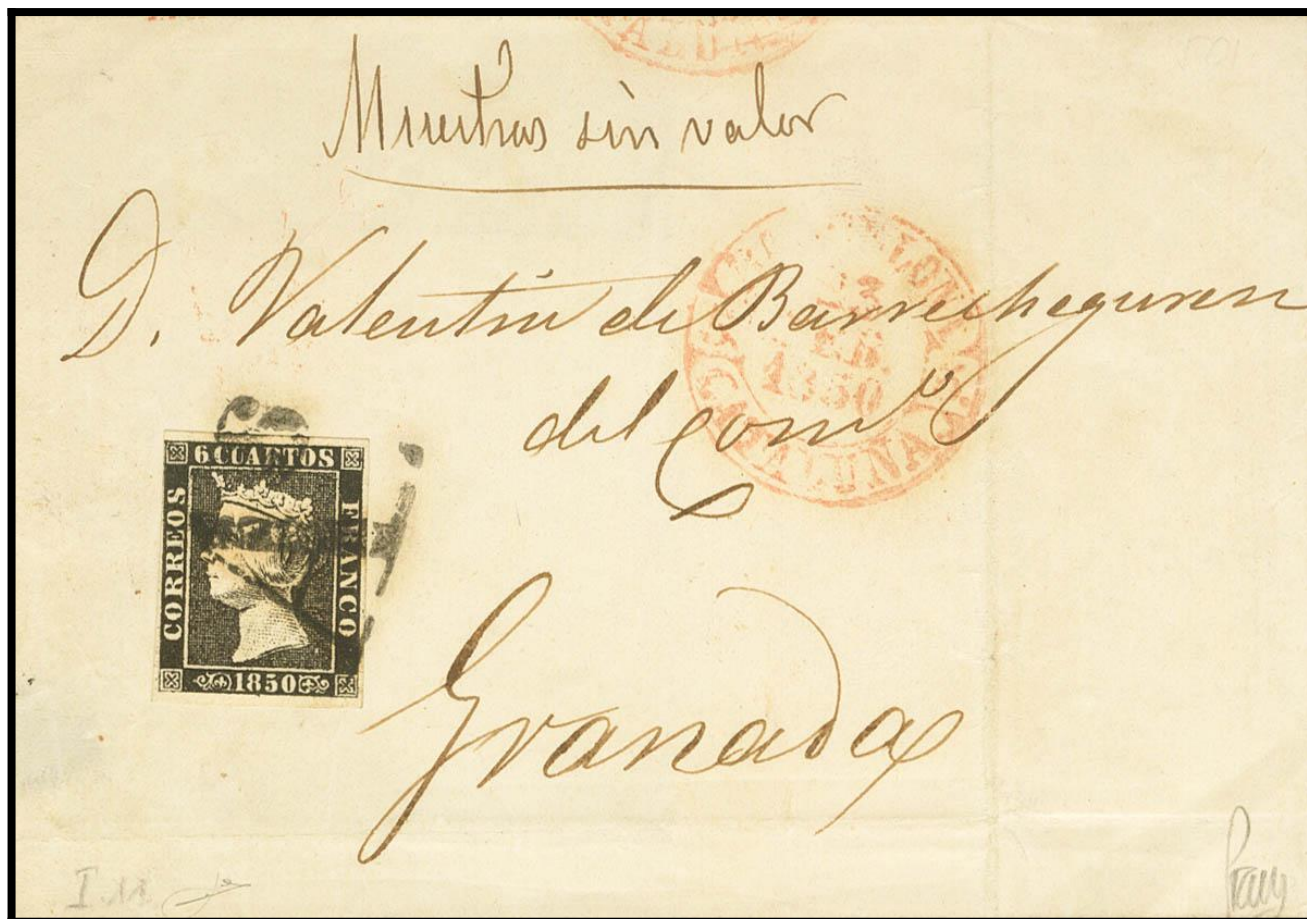 Muestras sin valor
D. Valentin de Barrecheguren
del Comº
Granada
6 CUARTOS
CORREOS
FRANCO
1850
1850
I